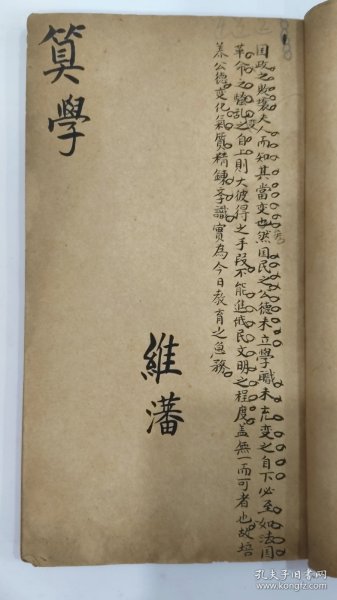 国政之敗壞夫人而知其當变也然国民之公德未立學識未充变之自下必至如法国
革命之騷乱变之自上則大彼得之手段不能進俄民文明之程度盖無一而可者也故培
养公德变化氣質精鍊学識實為今日教育之急務
算學
維藩
孔夫子旧书网